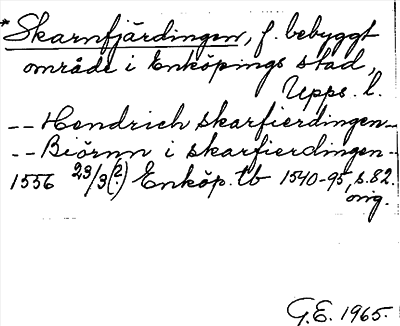 *Skarnfjärdingen, f. bebyggt
område i Enköpings stad,
Upps. l.
-- Hendrich skarfierdingen --
-- Biörnn i skarfierdingen --
1556 23/3(?) Enköp. tb 1540-95, s. 82.
orig.
G.E. 1965.